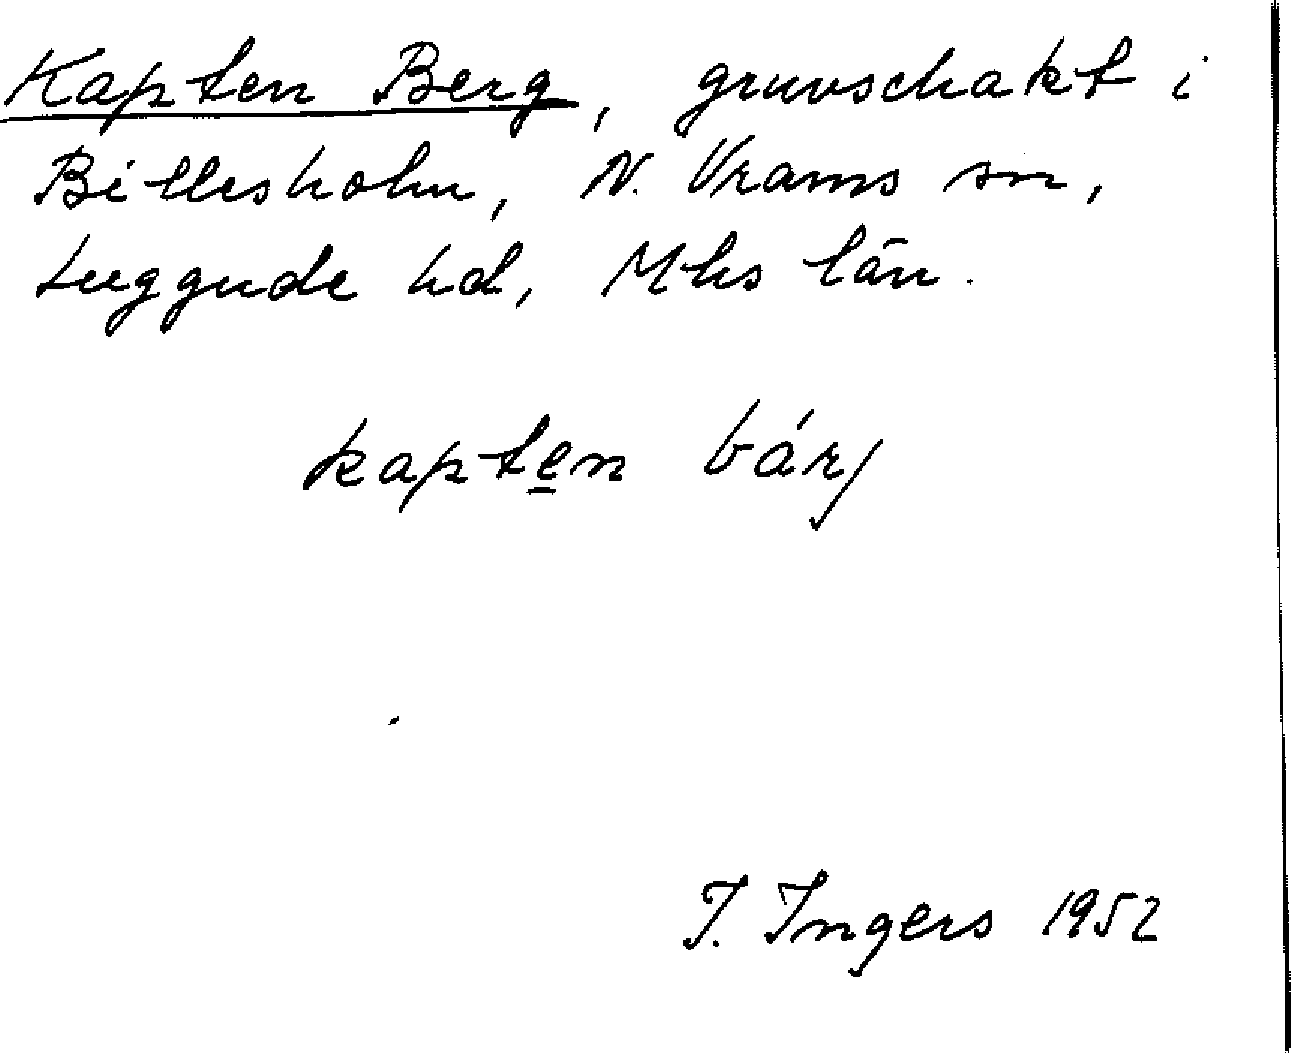 Kapten Berg, gruvschakt i
Billesholm, N. Vrams sn,
Luggude hd, Mhs län.
kapte̲n bárj
I. Ingers 1952